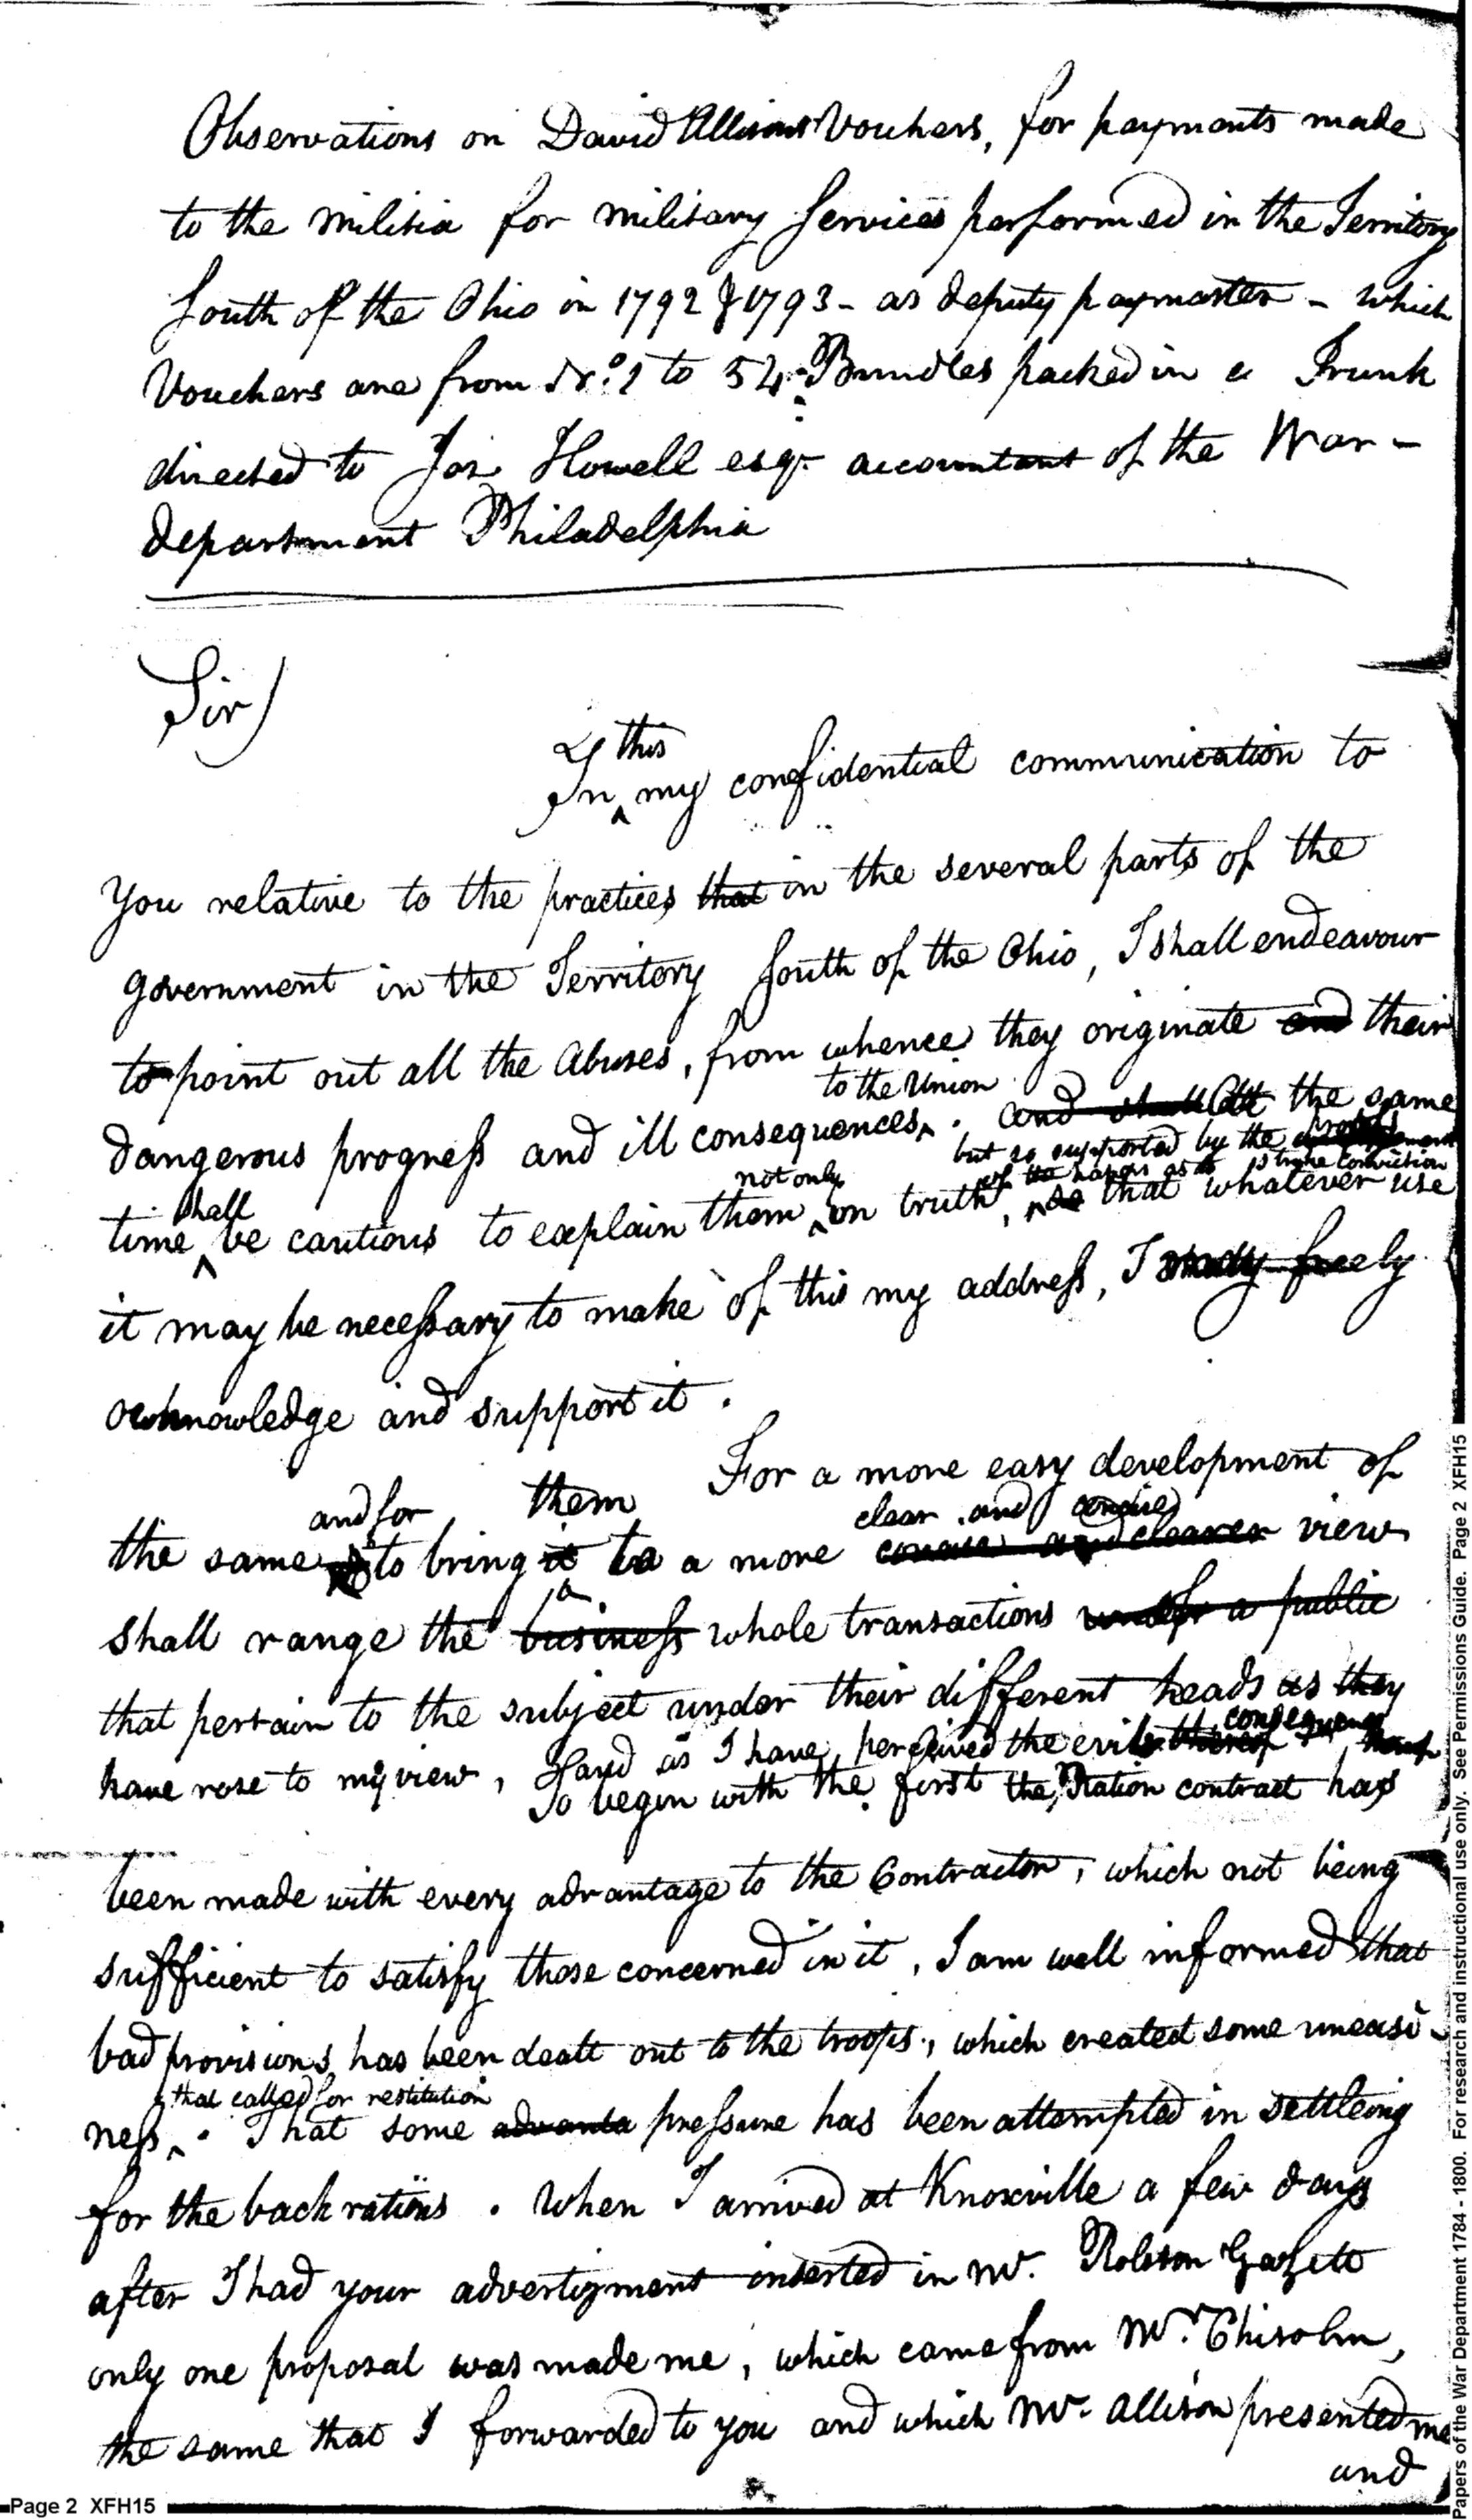 Observations on David Allisons Vouchers, for payments made
to the militia for military Services performed in the Territory
South of the Ohio in 1792 & 1793 - as deputy paymaster - which
Vouchers are from No. 1 to 54 Bundles packed in a Trunk
directed to Jos. Howell esqr accountant of the War -
department Philadelphia
Sir)
this
In my confidential communication to
You relative to the practices that in the several parts of the
government in the Territory South of the Ohio, I shall endeavour
to point out all the Abuses, from whence they originate and their
to the Union
dangerous progress and ill consequences. and shall At the same
but so supported by the
not only of the papers as to strike conviction
shall
time be cautious to explain them on truth, that whatever use
it may be necessary to make of this my address, I freely
acknowledge and support it.
For a more easy development of
and for them clear and concise
the same to bring it to a more concise and clearer view
shall range the business whole transactions under a public
that pertain to the subject under their different heads as they
consequences
have rose to my view, and as I have perceived the evil thereof
To begin with the first the Ration contract has
been made with every advantage to the Contractor, which not being
sufficient to satisfy those concerned in it, I am well informed that
bad provisions has been dealt out to the troops, which created some uneasi-
that called for restitution
ness. That some advanta pressure has been attempted in settleing
for the back rations. When I arrived at Knoxville a few days
after I had your advertizment inserted in Mr. Rolston Gazete
only one proposal was made me, which came from Mr. Chisolm,
the same that I forwarded to you and which Mr. Allison presented me
and
Page 2 XFH15
Papers of the War Department 1784 - 1800. For research and instructional use only. See Permissions Guide. Page 2 XFH15